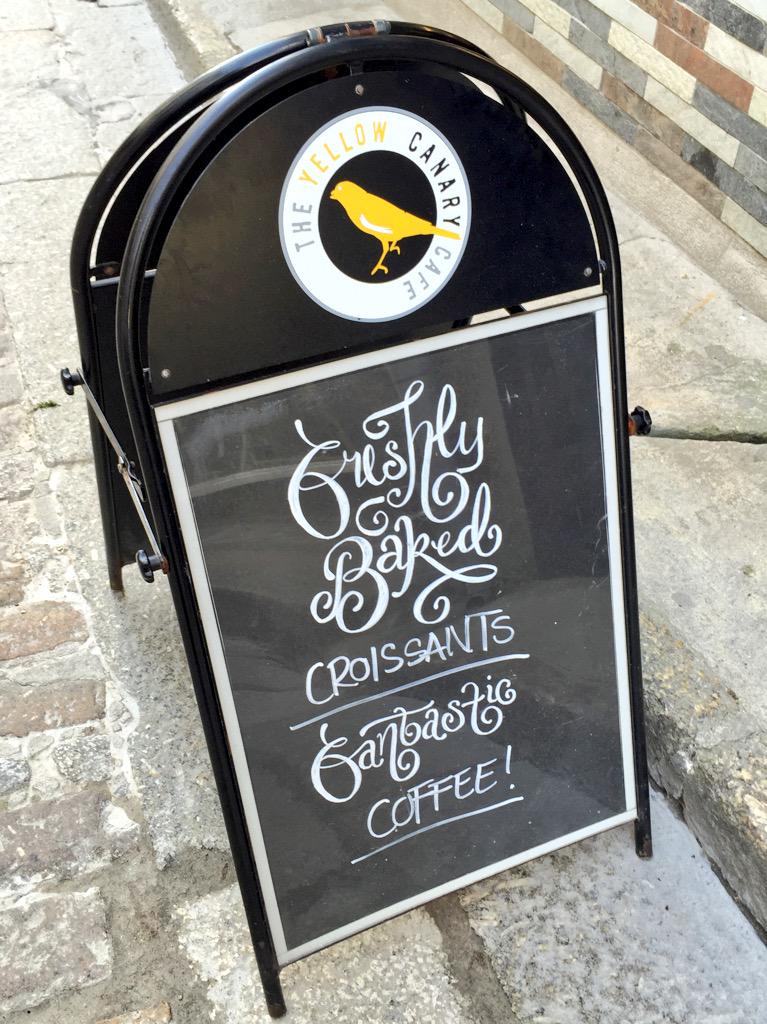 THE YELLOW CANARY CAFE
Freshly
Baked
CROISSANTS
Fantastic
COFFEE!